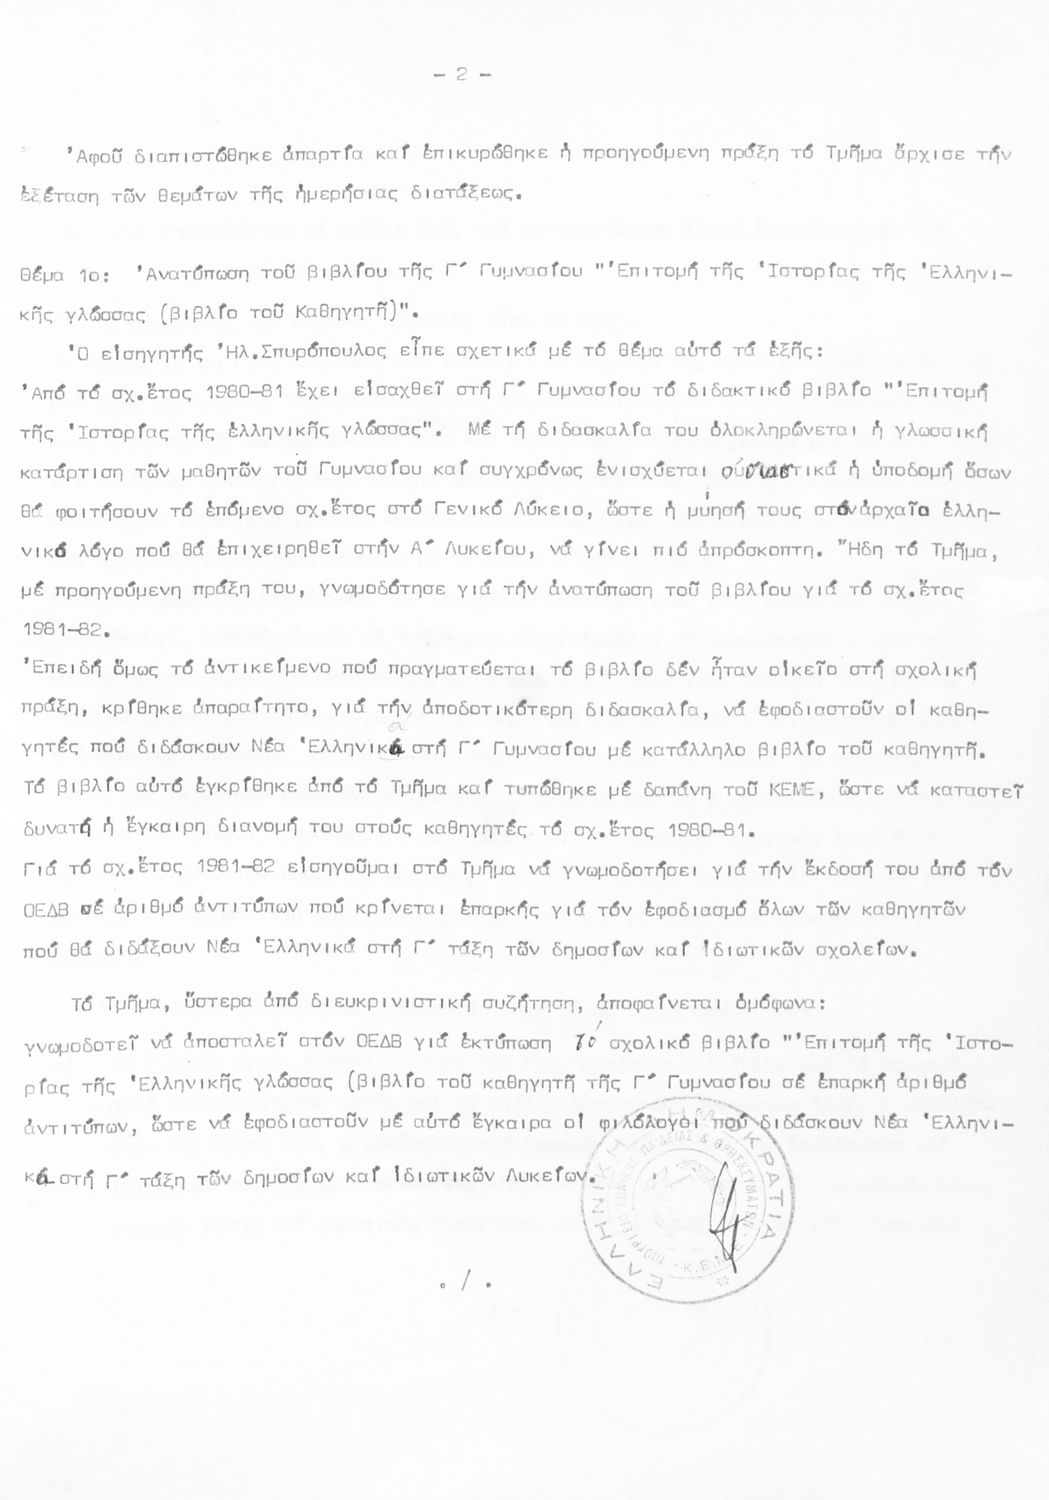 - 2 -
Ἀφοῦ διαπιστώθηκε ἀπαρτία καί ἐπικυρώθηκε ἡ προηγούμενη πράξη τό Τμῆμα ἄρχισε τήν
ἐξέταση τῶν θεμάτων τῆς ἡμερήσιας διατάξεως.
Θέμα 1ο: Ἀνατύπωση τοῦ βιβλίου τῆς Γ΄ Γυμνασίου "Ἐπιτομή τῆς Ἱστορίας τῆς Ἑλληνι-
κῆς γλώσσας (βιβλίο τοῦ Καθηγητῆ)".
Ὁ εἰσηγητής Ἠλ.Σπυρόπουλος εἶπε σχετικά μέ τό θέμα αὐτό τά ἑξῆς:
Ἀπό τό σχ.ἔτος 1980-81 ἔχει εἰσαχθεῖ στή Γ΄ Γυμνασίου τό διδακτικό βιβλίο "Ἐπιτομή
τῆς Ἱστορίας τῆς ἑλληνικῆς γλώσσας". Μέ τή διδασκαλία του ὁλοκληρώνεται ἡ γλωσσική
κατάρτιση τῶν μαθητῶν τοῦ Γυμνασίου καί συγχρόνως ἐνισχύεται οὐσιαστικά ἡ ὑποδομή ὅσων
θά φοιτήσουν τό ἑπόμενο σχ.ἔτος στό Γενικό Λύκειο, ὥστε ἡ μύησή τους στόν ἀρχαῖο ἑλλη-
νικό λόγο πού θά ἐπιχειρηθεῖ στήν Α΄ Λυκείου, νά γίνει πιό ἀπρόσκοπτη. Ἤδη τό Τμῆμα,
μέ προηγούμενη πράξη του, γνωμοδότησε γιά τήν ἀνατύπωση τοῦ βιβλίου γιά τό σχ.ἔτος
1981-82.
Ἐπειδή ὅμως τό ἀντικείμενο πού πραγματεύεται τό βιβλίο δέν ἦταν οἰκεῖο στή σχολική
πράξη, κρίθηκε ἀπαραίτητο, γιά τήν ἀποδοτικότερη διδασκαλία, νά ἐφοδιαστοῦν οἱ καθη-
γητές πού διδάσκουν Νέα Ἑλληνικά στή Γ΄ Γυμνασίου μέ κατάλληλο βιβλίο τοῦ καθηγητῆ.
Τό βιβλίο αὐτό ἐγκρίθηκε ἀπό τό Τμῆμα καί τυπώθηκε μέ δαπάνη τοῦ ΚΕΜΕ, ὥστε νά καταστεῖ
δυνατή ἡ ἔγκαιρη διανομή του στούς καθηγητές τό σχ.ἔτος 1980-81.
Γιά τό σχ.ἔτος 1981-82 εἰσηγοῦμαι στό Τμῆμα νά γνωμοδοτήσει γιά τήν ἔκδοσή του ἀπό τόν
ΟΕΔΒ σέ ἀριθμό ἀντιτύπων πού κρίνεται ἐπαρκής γιά τόν ἐφοδιασμό ὅλων τῶν καθηγητῶν
πού θά διδάξουν Νέα Ἑλληνικά στή Γ΄ τάξη τῶν δημοσίων καί ἰδιωτικῶν σχολείων.
Τό Τμῆμα, ὕστερα ἀπό διευκρινιστική συζήτηση, ἀποφαίνεται ὁμόφωνα:
γνωμοδοτεῖ νά ἀποσταλεῖ στόν ΟΕΔΒ γιά ἐκτύπωση τό σχολικό βιβλίο "Ἐπιτομή τῆς Ἱστο-
ρίας τῆς Ἑλληνικῆς γλώσσας (βιβλίο τοῦ καθηγητῆ τῆς Γ΄ Γυμνασίου σέ ἐπαρκή ἀριθμό
ἀντιτύπων, ὥστε νά ἐφοδιαστοῦν μέ αὐτό ἔγκαιρα οἱ φιλόλογοι πού διδάσκουν Νέα Ἑλληνι-
κά στή Γ΄ τάξη τῶν δημοσίων καί ἰδιωτικῶν Λυκείων.
ΕΛΛΗΝΙΚΗ ΔΗΜΟΚΡΑΤΙΑ
ΥΠΟΥΡΓΕΙΟ ΕΘΝΙΚΗΣ ΠΑΙΔΕΙΑΣ & ΘΡΗΣΚΕΥΜΑΤΩΝ
./.